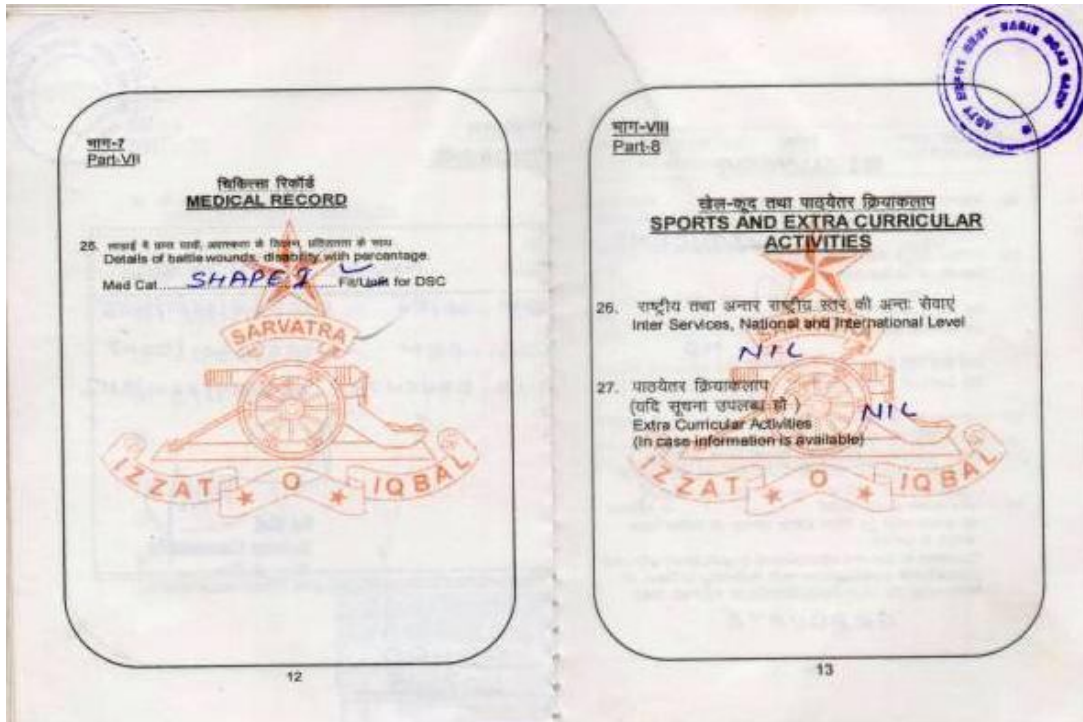 भाग-7
Part-VII
चिकित्सा रिकॉर्ड
MEDICAL RECORD
25. लड़ाई में प्राप्त घावों, के साथ
Details of battle wounds, disability with percentage.
Med Cat..........SHAPE 1..........Fit/Unfit for DSC
SARVATRA
IZZAT O IQBAL
12
भाग-VIII
Part-8
खेल-कूद तथा पाठ्येतर क्रियाकलाप
SPORTS AND EXTRA CURRICULAR
ACTIVITIES
26. राष्ट्रीय तथा अन्तर राष्ट्रीय स्तर की अन्तः सेवाएं
Inter Services, National and International Level
NIL
27. पाठयेतर क्रियाकलाप
(यदि सूचना उपलब्ध हो )
NIL
Extra Curricular Activities
(In case information is available)
IZZAT O IQBAL
13